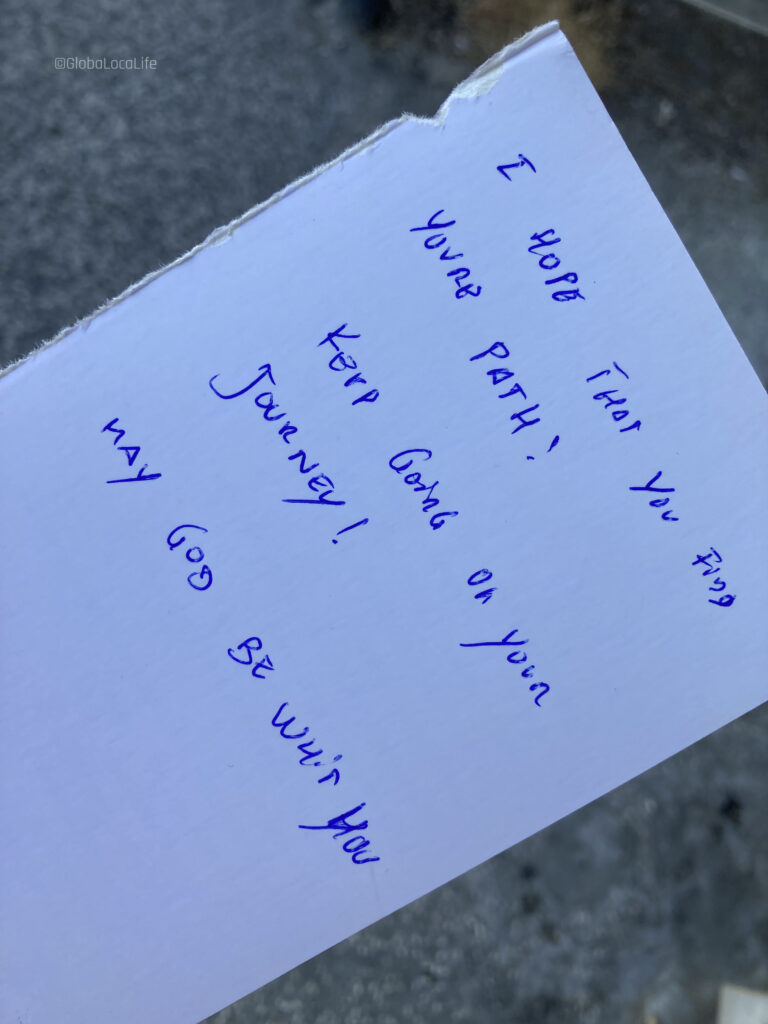 @GlobaLocaLife
I HOPE THAT YOU FIND
YOURE PATH!
KEEP GOING ON YOUR
JOURNEY!
MAY GOD BE WHIT YOU